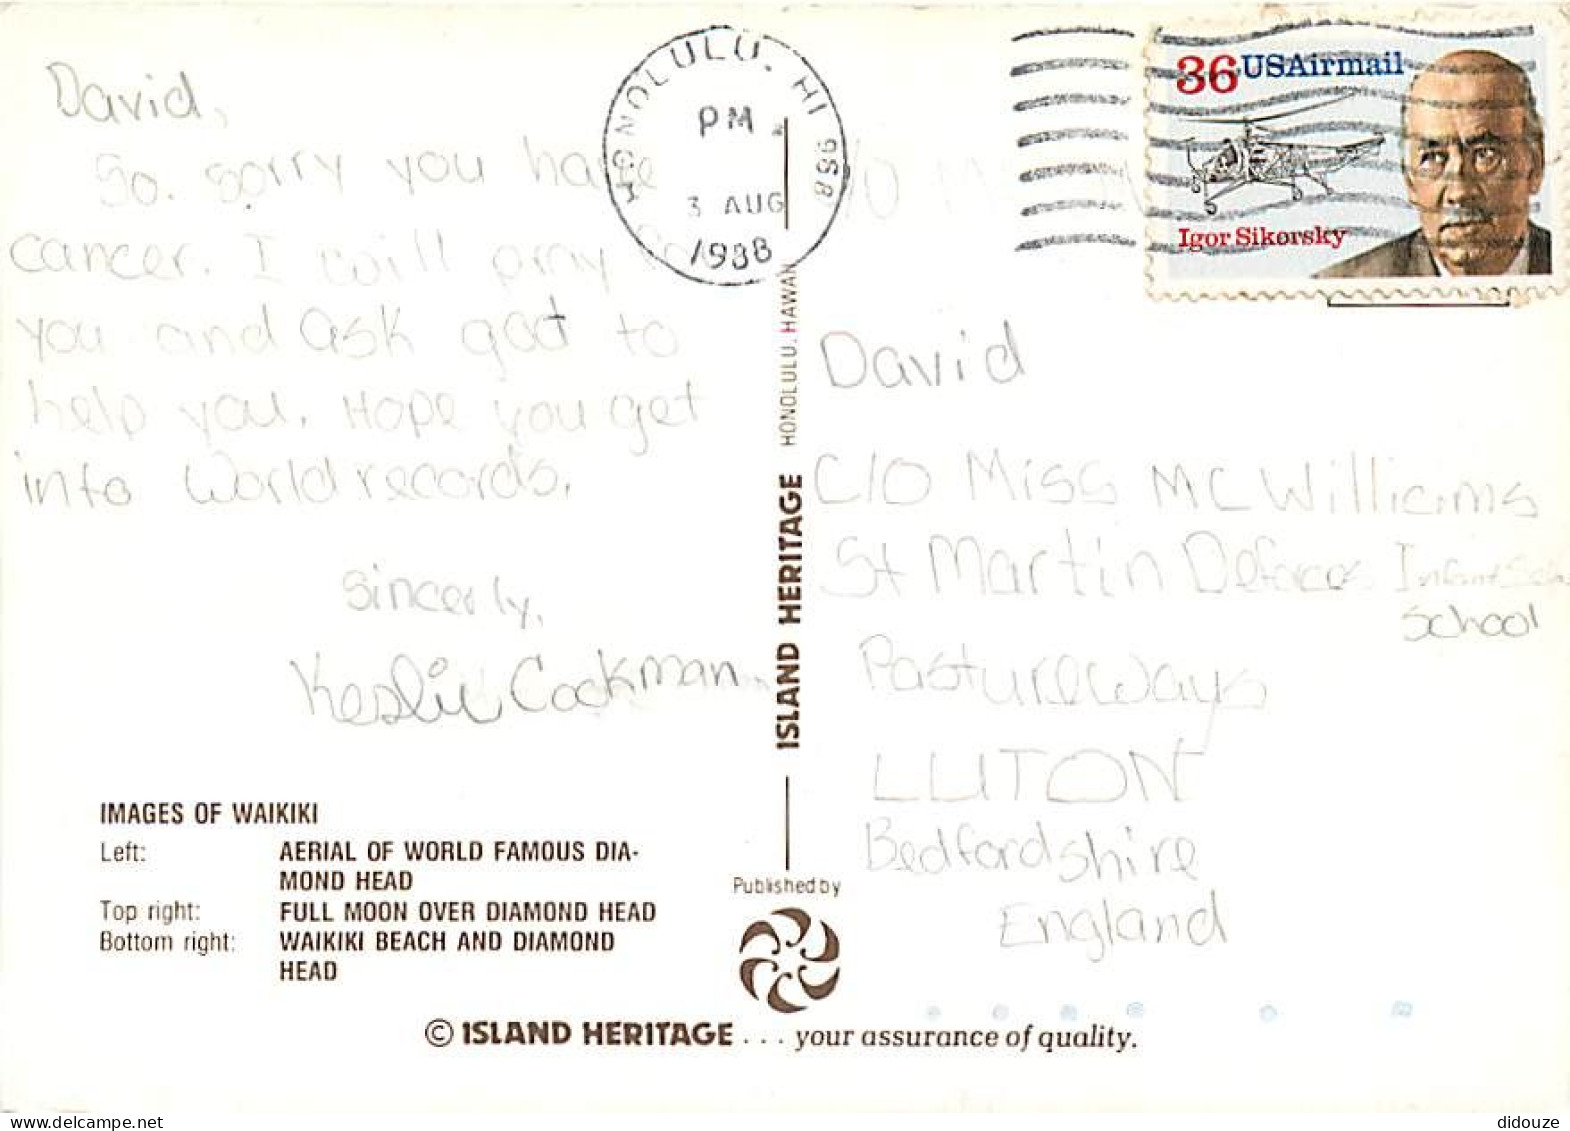 David,
So. sorry you have
cancer. I will pray
you and ask god to
help you. Hope you get
into World records.
Sincerly,
Keslie Cockman
IMAGES OF WAIKIKI
Left: AERIAL OF WORLD FAMOUS DIA-
MOND HEAD
Top right: FULL MOON OVER DIAMOND HEAD
Bottom right: WAIKIKI BEACH AND DIAMOND
HEAD
HONOLULU, HI 968
PM
3 AUG
1988
ISLAND HERITAGE HONOLULU, HAWAII
Published by
36 USAirmail
Igor Sikorsky
David
C/O Miss MC Williams
St Martin Deforces Infant Sch
School
Pastureways
LUTON
Bedfordshire
England
© ISLAND HERITAGE . . . your assurance of quality.
didouze